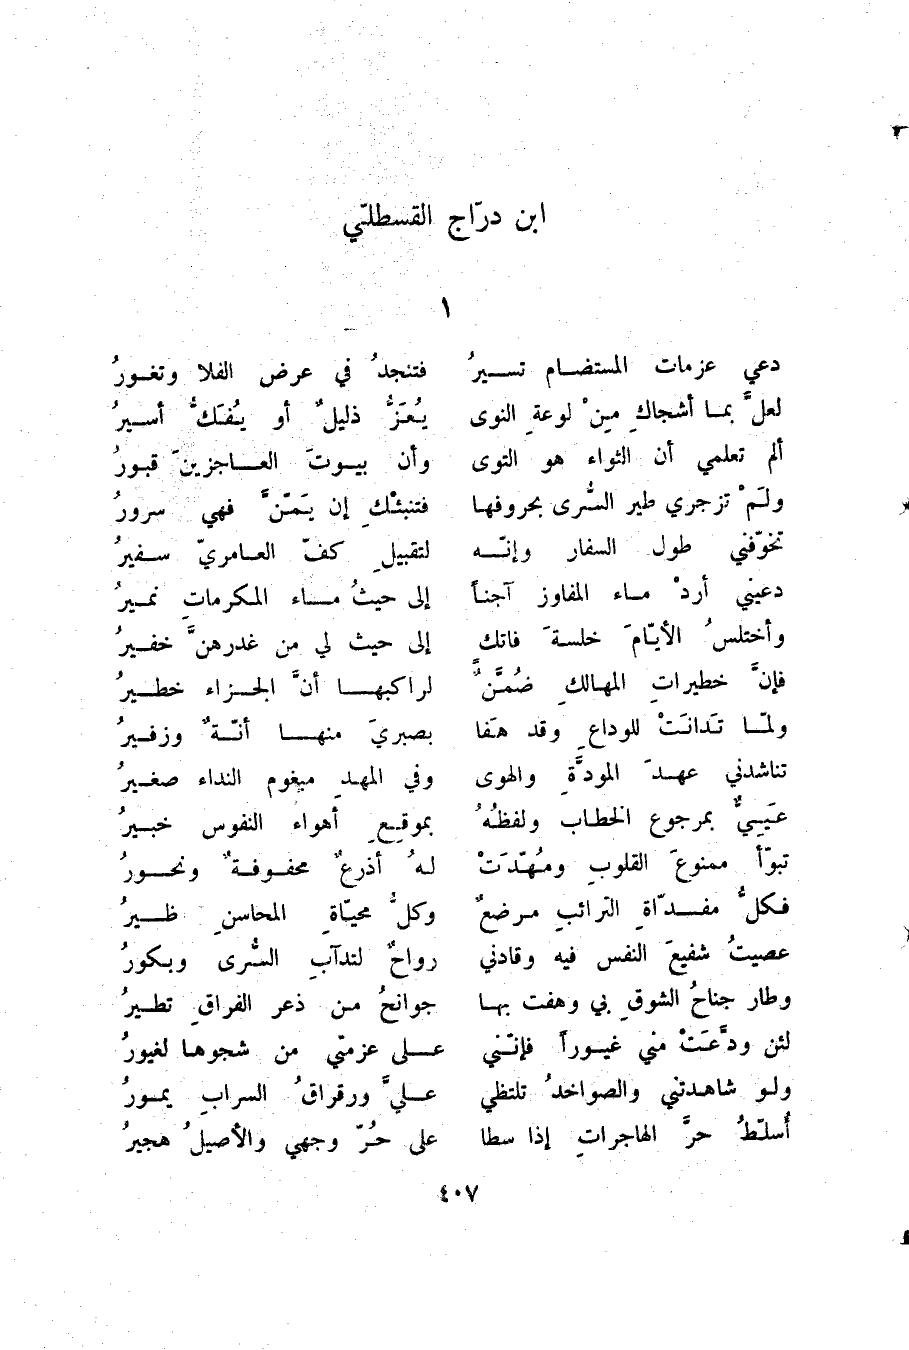 ابن درّاج القسطلّي
١
دعي عزمات المستضام تسيرُ فتنجدُ في عرض الفلا وتغورُ
لعلَّ بما أشجاكِ مِنْ لوعةِ النوى يُعَزُّ ذليلٌ أو يُفَكُّ أسيرُ
ألم تعلمي أن الثواء هو التوى وأن بيوتَ العاجزينَ قبورُ
ولَمْ تزجري طير السُّرى بحروفها فتنبئْكِ إن يَمّنَّ فهي سرورُ
تخوّفني طول السفار وإنّه لتقبيلِ كفّ العامريّ سفيرُ
دعيني أردْ ماء المفاوز آجناً إلى حيثُ ماء المكرماتِ نميرُ
وأختلسُ الأيّامَ خلسةَ فاتكٍ إلى حيث لي من غدرهنَّ خفيرُ
فإنَّ خطيراتِ المهالكِ ضُمَّنٌ لراكبها أنَّ الجزاء خطيرُ
ولمّا تَدانَتْ للوداعِ وقد هَفا بصبريَ منها أنّةٌ وزفيرُ
تناشدني عهدَ المودَّةِ والهوى وفي المهدِ مبغوم النداء صغيرُ
عَيَيٌّ بمرجوع الخطاب ولفظُهُ بموقعِ أهواء النفوس خبيرُ
تبوّأ ممنوعَ القلوبِ ومُهّدَتْ لهُ أذرعٌ محفوفةٌ ونحورُ
فكلُّ مفدّاةِ الترائبِ مرضعٌ وكلُّ محيّاةِ المحاسنِ ظيرُ
عصيتُ شفيعَ النفس فيه وقادني رواحٌ لتدآبِ السُّرى وبكورُ
وطار جناحُ الشوقِ بي وهفت بها جوانحُ من ذعر الفراقِ تطيرُ
لئن ودَّعَتْ مني غيوراً فإنّني على عزمتي من شجوها لغيورُ
ولو شاهدتني والصواخدُ تلتظي عليَّ ورقراقُ السرابِ يمورُ
أُسلّطُ حرَّ الهاجراتِ إذا سطا على حُرّ وجهي والأصيلُ هجيرُ
٤٠٧